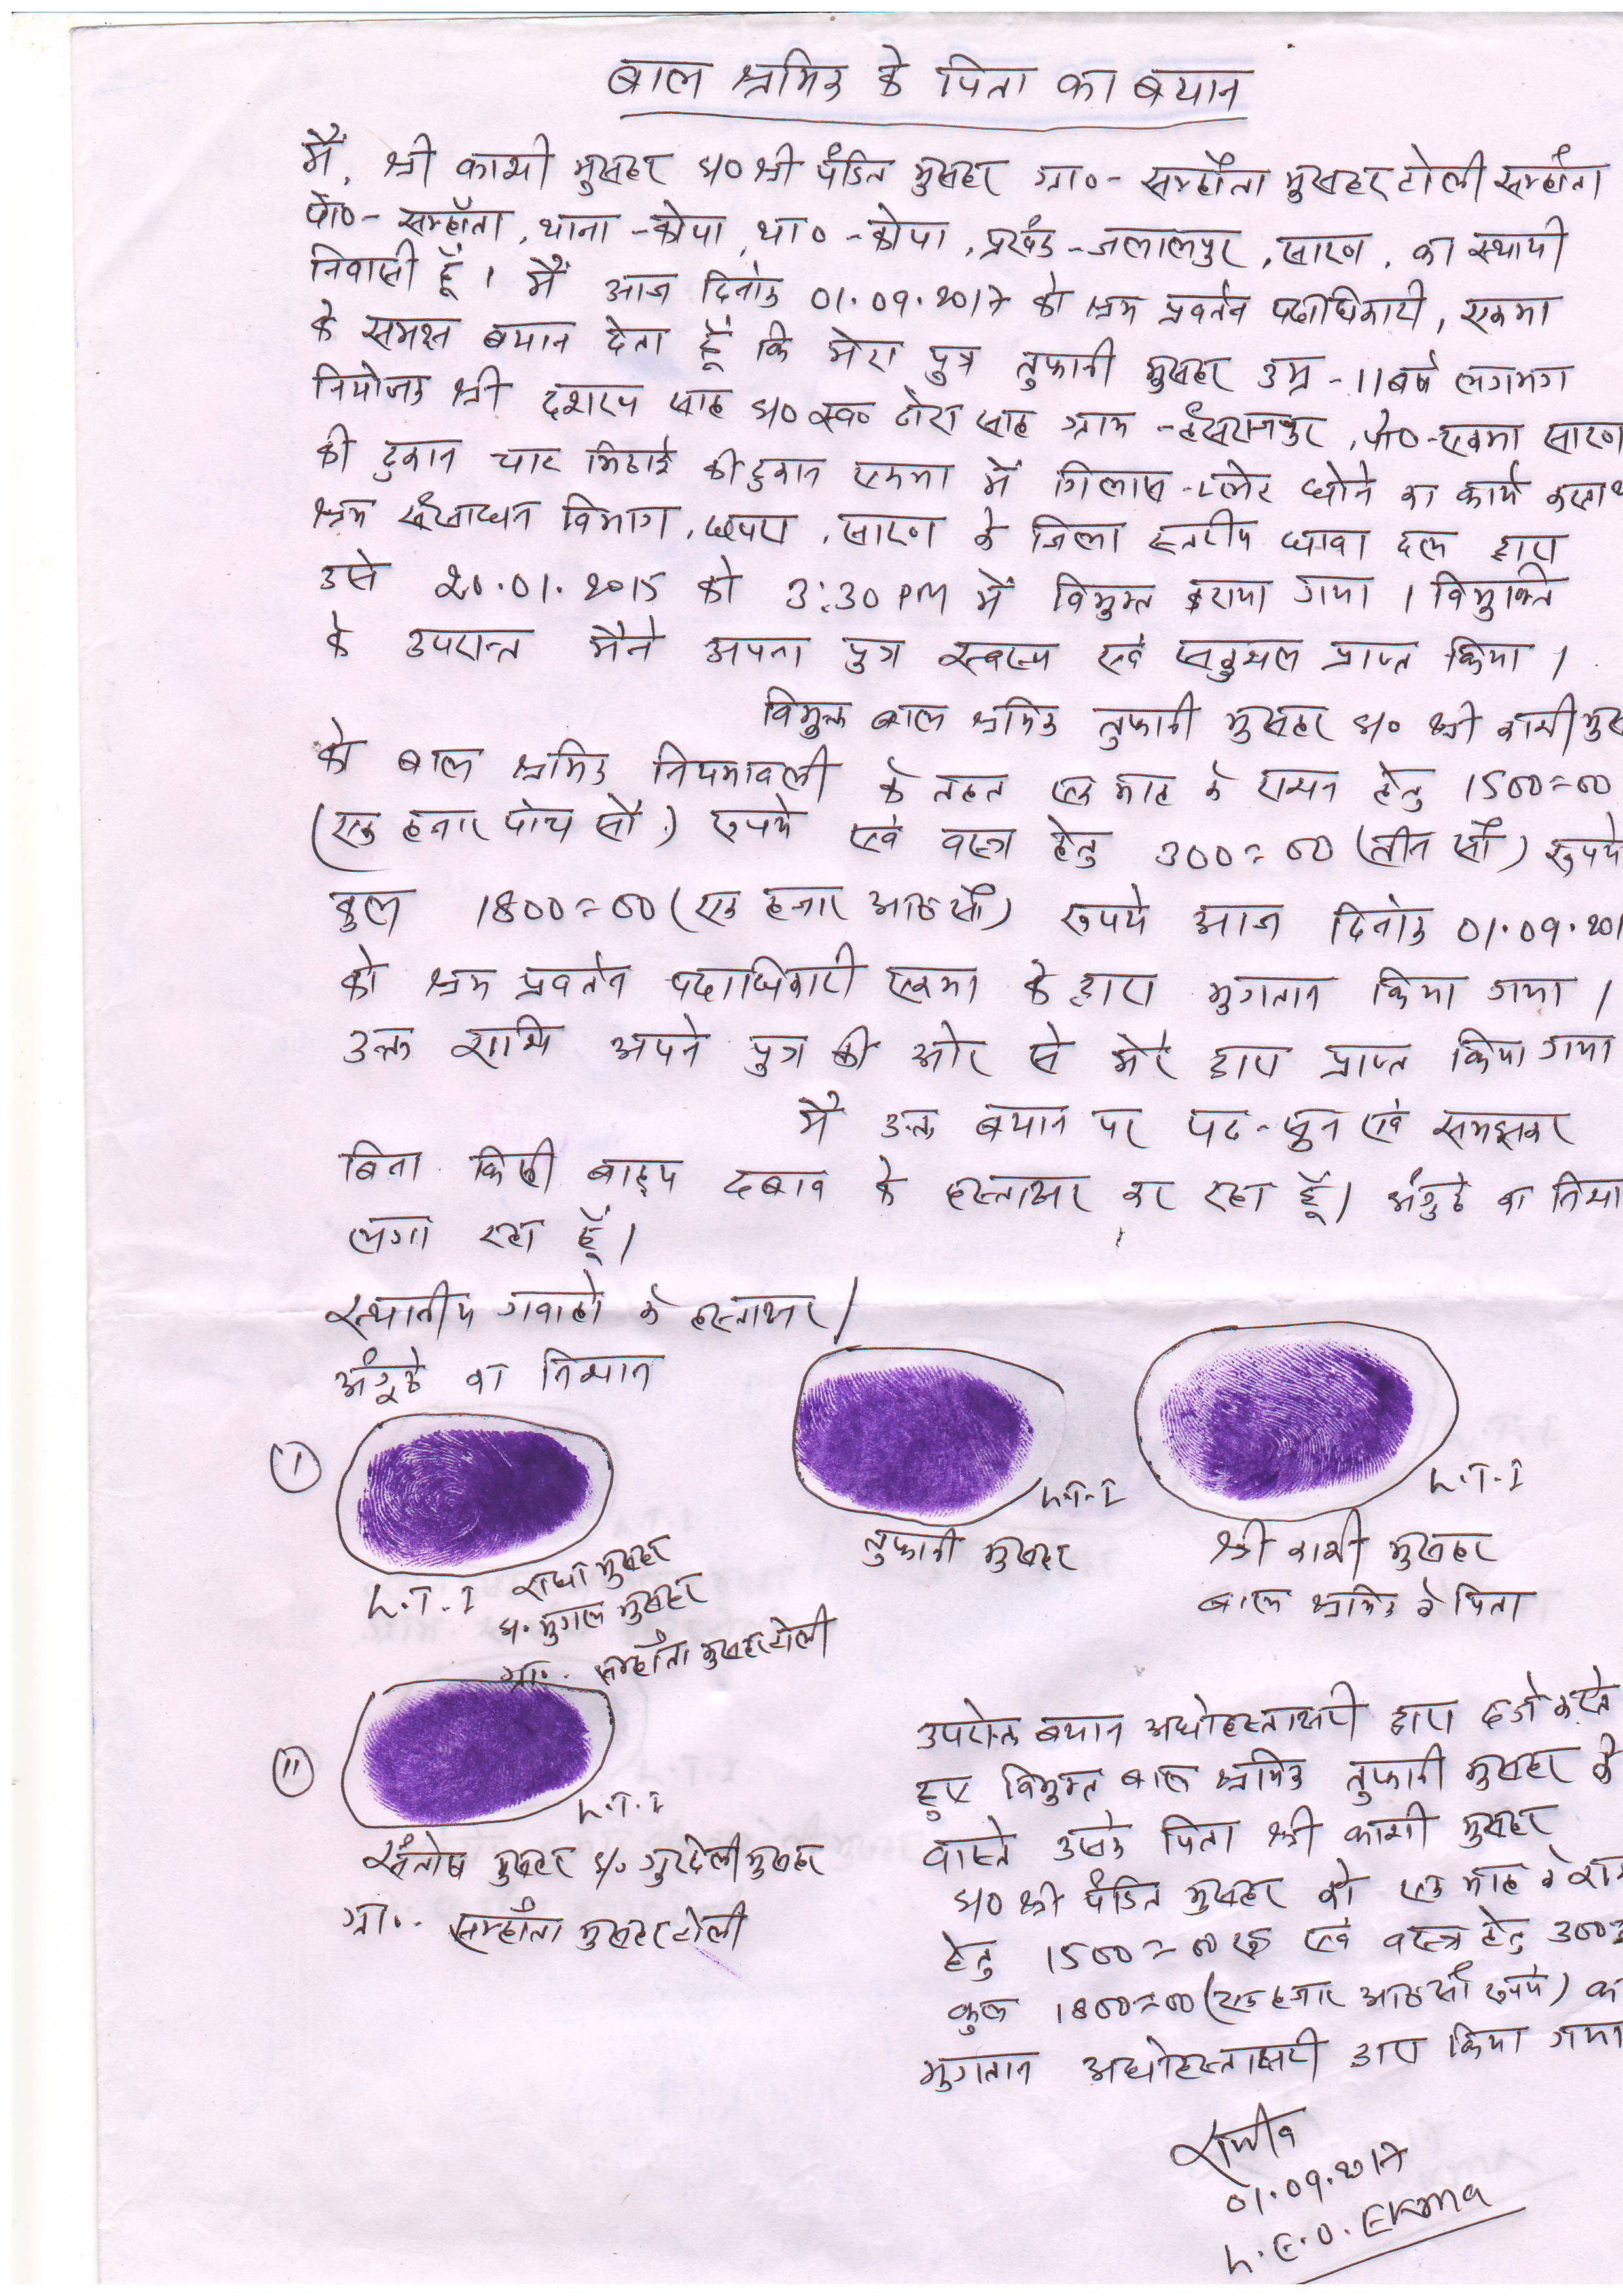 बाल श्रमिक के पिता का बयान
मैं, श्री काशी मुसहर S/० श्री पंडित मुसहर ग्रा०- सम्हौता मुसहर टोली सम्हौता
पो०- सम्हौता, थाना - कोपा, था० - कोपा, प्रखंड - जलालपुर, सारण, का स्थायी
निवासी हूँ। मैं आज दिनांक 01.09.2017 को श्रम प्रवर्तन पदाधिकारी, एकमा
के समक्ष बयान देता हूँ कि मेरा पुत्र तुफानी मुसहर उम्र - 11 बर्ष लगभग
नियोजक श्री दशरथ साह S/० स्व० साह ग्राम - हंसराजपुर, पो०- एकमा सारण
की दुकान चाट मिठाई की दुकान एकमा में गिलास - प्लेट धोने का कार्य करता
श्रम संसाधन विभाग, छपरा, सारण के जिला स्तरीय धावा दल द्वारा
उसे 20.01.2015 को 3:30 PM में विमुक्त कराया गया। विमुक्ति
के उपरान्त मैंने अपना पुत्र स्वस्थ एवं सकुशल प्राप्त किया।
विमुक्त बाल श्रमिक तुफानी मुसहर S/० श्री काशी
को बाल श्रमिक नियमावली के तहत एक माह के राशन हेतु 1500=00
(एक हजार पांच सौ) रुपये एवं वस्त्र हेतु 300=00 (तीन सौ) रुपये
कुल 1800=00 (एक हजार आठ सौ) रुपये आज दिनांक 01.09.201
को श्रम प्रवर्तन पदाधिकारी एकमा के द्वारा भुगतान किया गया।
उक्त राशि अपने पुत्र की ओर से मेरे द्वारा प्राप्त किया गया
मैं उक्त बयान पर पढ़-सुन एवं समझकर
बिना किसी बाह्य दबाव के हस्ताक्षर कर रहा हूँ। अंगुठे का निशा
लगा रहा हूँ।
स्थानीय गवाहों के हस्ताक्षर/
अंगूठे का निशान
(I)
L.T.I
L.T.I
तुफानी मुसहर
श्री काशी मुसहर
बाल श्रमिक के पिता
L.T.I राधा मुसहर
S/. मुगल मुसहर
ग्रा०. सम्हौता मुसहर टोली
(II)
L.T.I
संतोष मुसहर S/. मुसहर
ग्रा०. सम्हौता मुसहर टोली
उपरोक्त बयान अधोहस्ताक्षरी द्वारा दर्ज करते
हुए विमुक्त बाल श्रमिक तुफानी मुसहर के
वास्ते उसके पिता श्री काशी मुसहर
S/० श्री पंडित मुसहर को एक माह के राश
हेतु 1500=00 रु एवं वस्त्र हेतु 300=
कुल 1800=00 (एक हजार आठ सौ रुपये) का
भुगतान अधोहस्ताक्षरी द्वारा किया गया
01.09.2017
L.E.O. Ekma